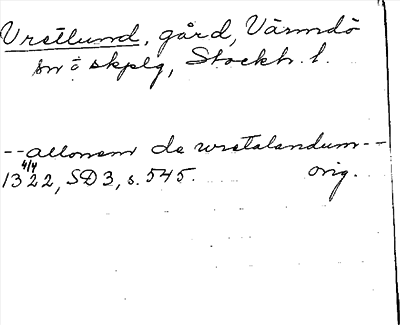 Vretlund, gård, Värmdö
sn o skplg, Stockh. l.
-- allonem de wretalandum --
4/4
1322, SD 3, s. 545. orig.